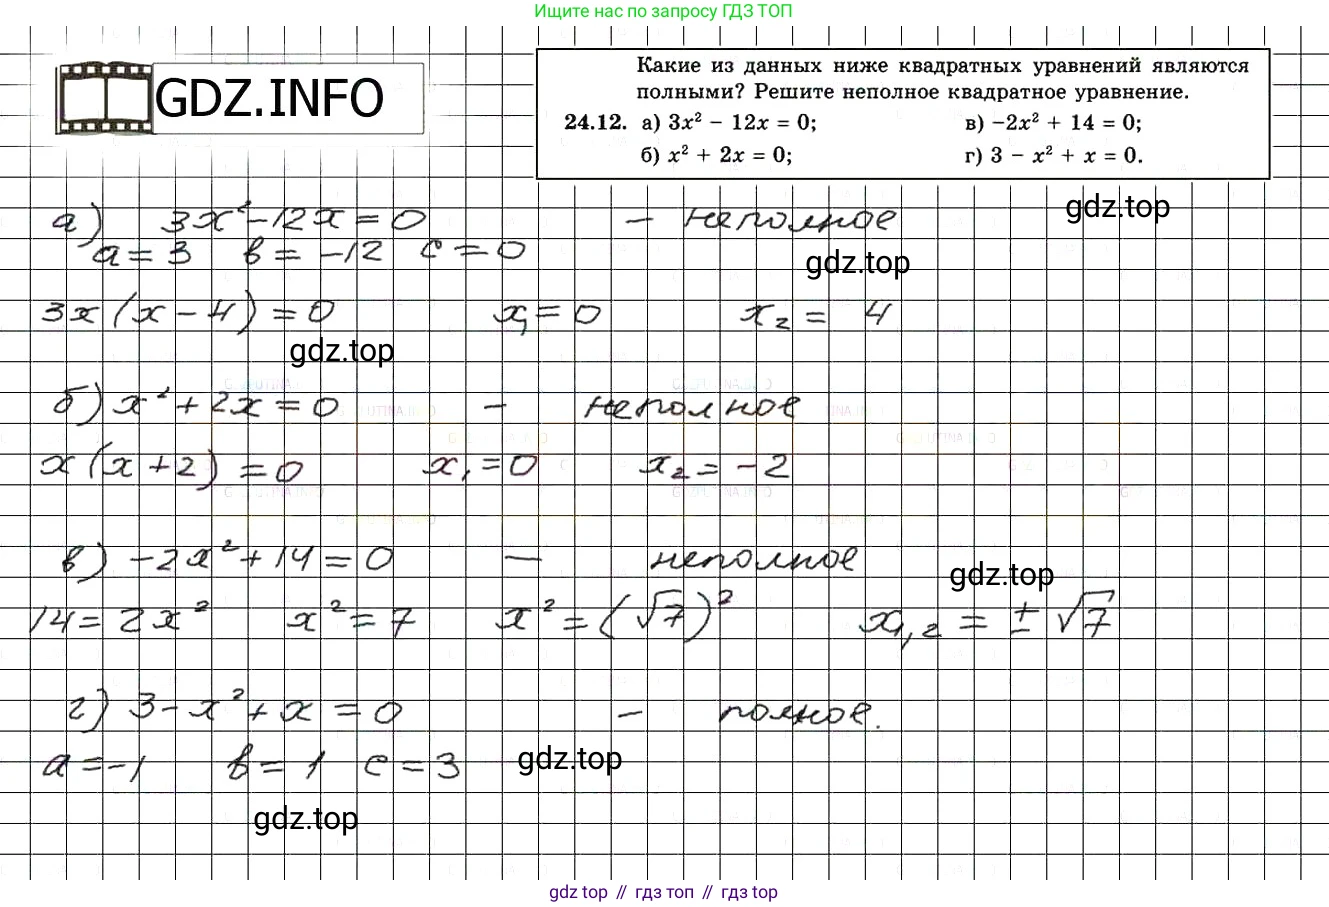 Ищите нас по запросу ГДЗ ТОП
GDZ.INFO
Какие из данных ниже квадратных уравнений являются
полными? Решите неполное квадратное уравнение.
24.12. а) 3x² − 12x = 0; в) −2x² + 14 = 0;
б) x² + 2x = 0; г) 3 − x² + x = 0.
а) 3x² − 12x = 0 − неполное
gdz.top
a = 3 в = −12 c = 0
gdz.top
3x(x − 4) = 0 x₁ = 0 x₂ = 4
gdz.top
б) x² + 2x = 0 − неполное
x(x + 2) = 0 x₁ = 0 x₂ = −2
в) −2x² + 14 = 0 — неполное
gdz.top
14 = 2x² x² = 7 x² = (√7)² x₁,₂ = ± √7
г) 3 − x² + x = 0 − полное.
a = −1 в = 1 c = 3
gdz.top
gdz.top
gdz top // гдз топ // gdz top